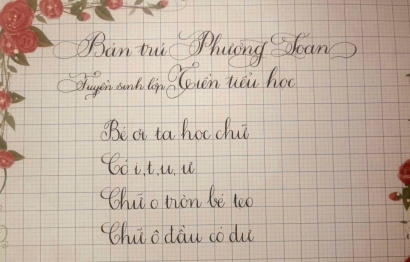 Bán trú Phượng Loan
Tuyển sinh lớp Tiền tiểu học
Bé ơi ta học chữ
Có i, t, u, ư
Chữ o tròn bé teo
Chữ ô đầu có dư